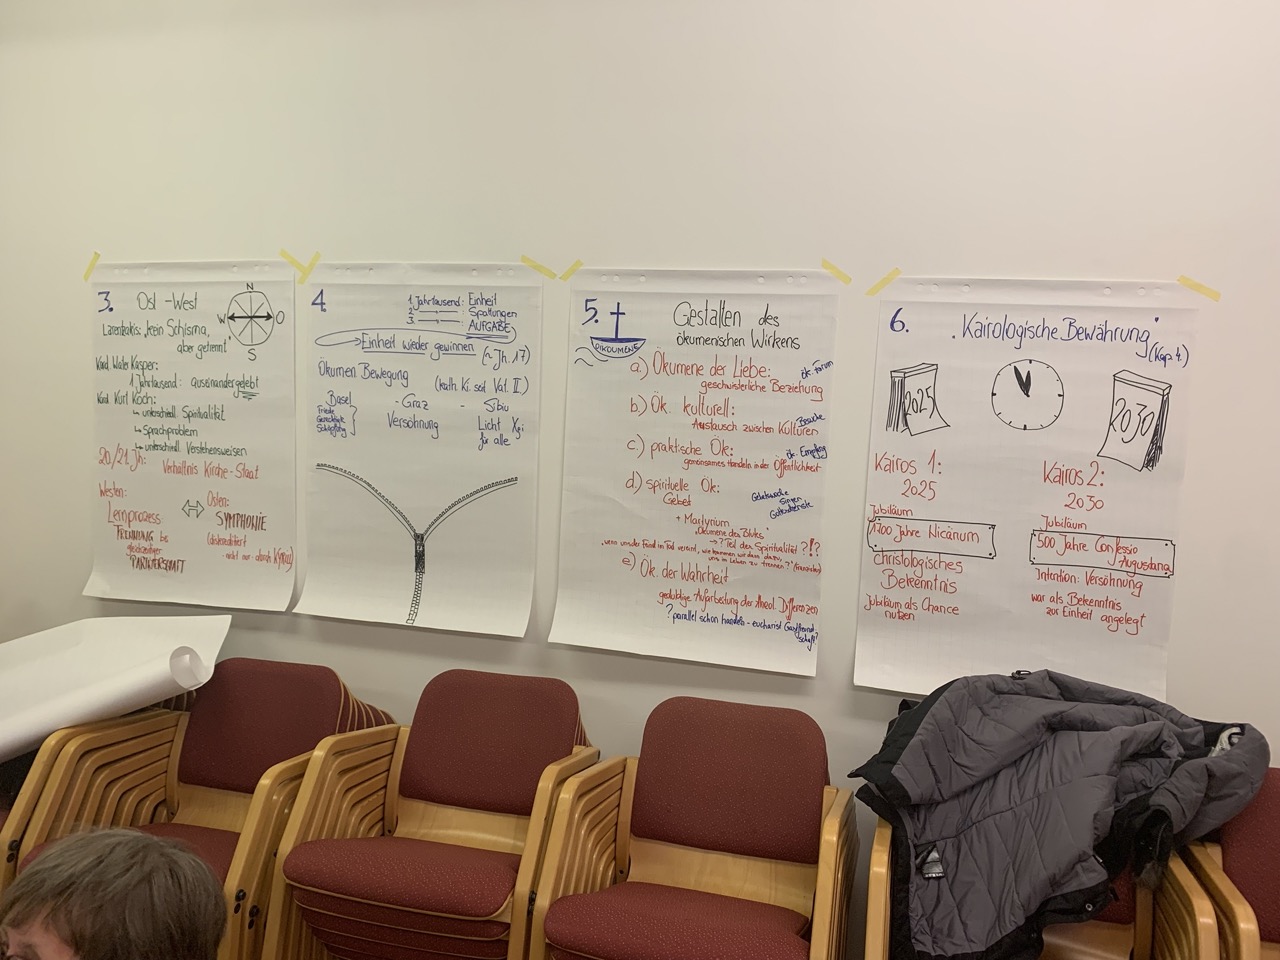 3.
Ost - West
N
W O
S
Larentzakis: „kein Schisma,
aber getrennt"
Kard. Walter Kasper:
1. Jahrtausend: auseinandergelebt
Kard. Kurt Koch:
↳ unterschiedl. Spiritualität
↳ Sprachproblem
↳ unterschiedl. Verstehensweisen
20/21. Jh: Verhältnis Kirche - Staat
Westen:
Lernprozess
TRENNUNG bei
gleichzeitiger
PARTNERSCHAFT
Osten:
SYMPHONIE
(diskreditiert
nicht nur durch Kyrill)
4.
1. Jahrtausend: Einheit
2. : Spaltungen
3. : AUFGABE
Einheit wieder gewinnen (n. Jh. 17)
Ökumen Bewegung (kath. Ki. seit Vat. II.)
Basel - Graz - Sibiu
Friede
Gerechtigkeit
Schöpfung
Versöhnung
Licht Xsi
für alle
5.
OIKOUMENE
Gestalten des
ökumenischen Wirkens
a.) Ökumene der Liebe:
geschwisterliche Beziehung
ök. Forum
b.) Ök. kulturell:
Austausch zwischen Kulturen
Besuche
c.) praktische Ök:
gemeinsames Handeln in der Öffentlichkeit
ök. Empfang
d.) spirituelle Ök:
Gebet
Gebetswoche
Singen
Gottesdienste
+ Martyrium
„Ökumene des Blutes"
→ ? Teil der Spiritualität ?!?
„wenn uns der Feind im Tod vereint, wie kommen wir dazu,
uns im Leben zu trennen?" (Franziskus)
e.) Ök. der Wahrheit
geduldige Aufarbeitung der theol. Differenzen
? parallel schon handeln - eucharist. Gastfreund-
schaft?
6.
„Kairologische Bewährung"
(Kap 4.)
2025
2030
Kairos 1:
2025
Jubiläum
1700 Jahre Nicänum
christologisches
Bekenntnis
Jubiläum als Chance
nutzen
Kairos 2:
2030
Jubiläum
500 Jahre Confessio
Augustana
Intention: Versöhnung
war als Bekenntnis
zur Einheit angelegt